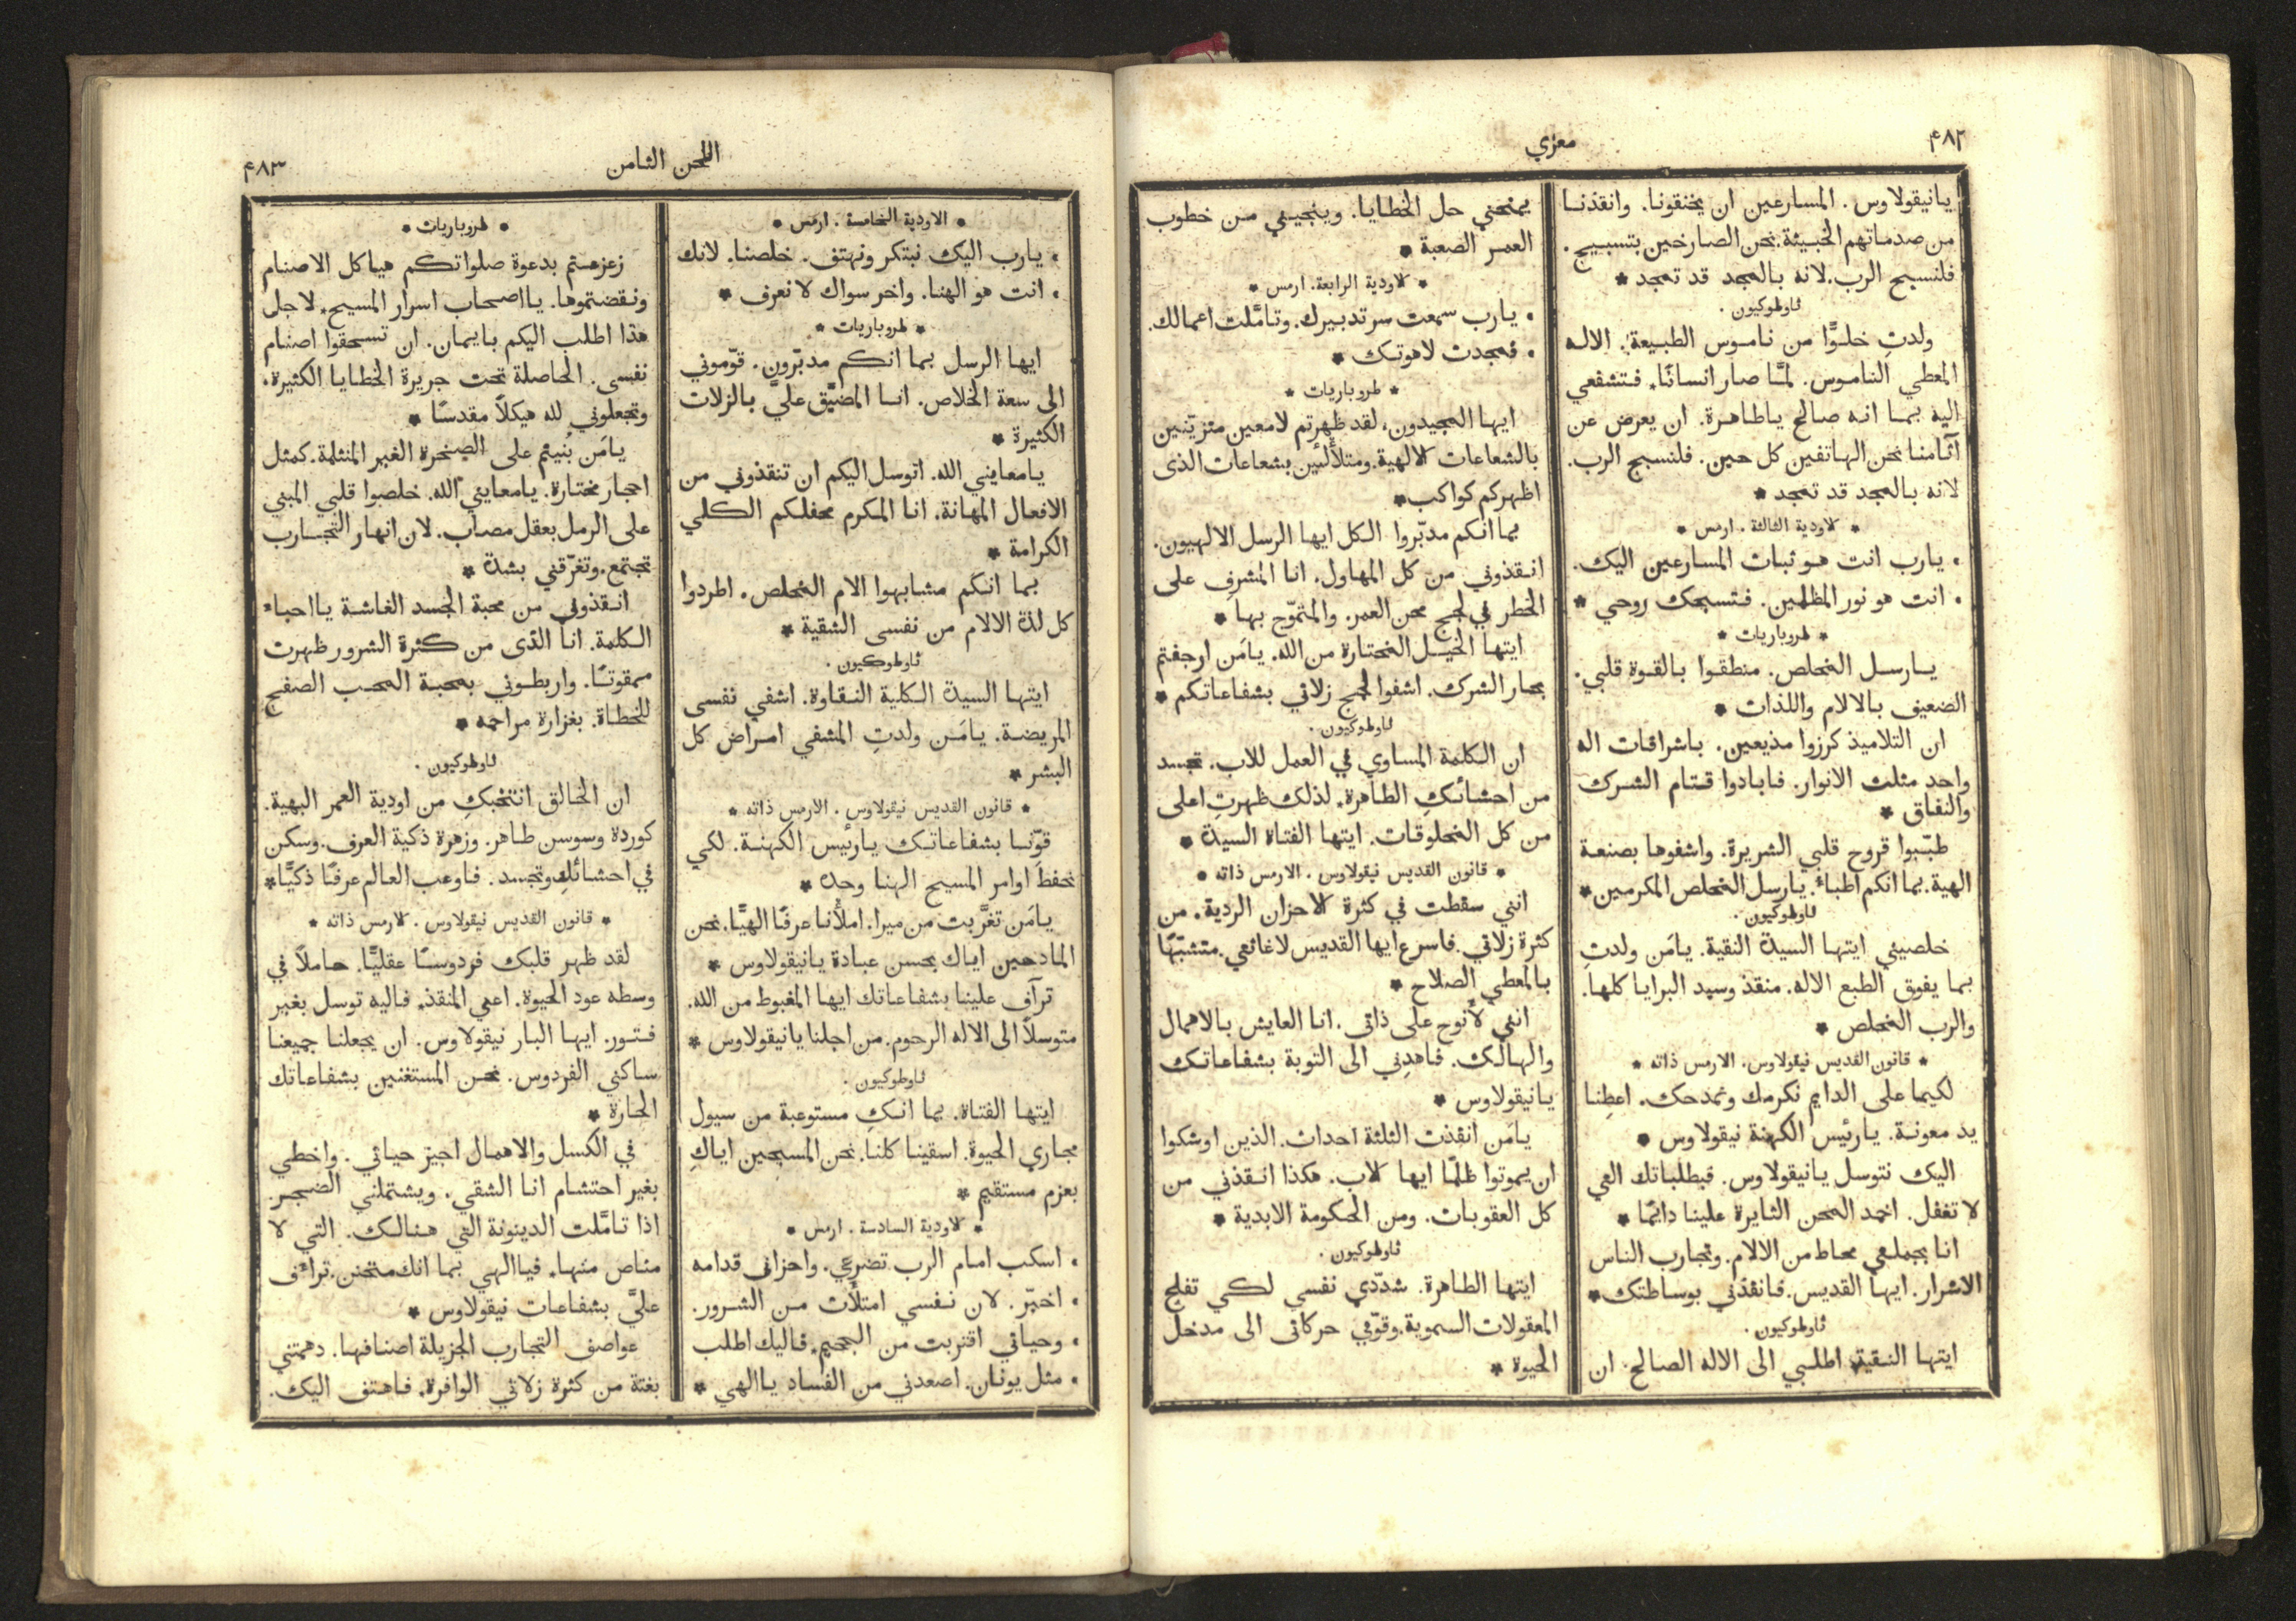 ٤٨٢
معزي
يانيقولاوس. المسارعين ان يخنقونا. وانقذنا
من صدماتهم الخبيثة. نحن الصارخين بتسبيح.
فلنسبح الرب. لانه بالمجد قد تمجد *
ثاوطوكيون.
ولدتِ خلوًّا من ناموس الطبيعة. الاله
المعطي الناموس. لمَّا صار انسانًا. فتشفعي
اليه بما انه صالح ياطاهرة. ان يعرض عن
آثامنا نحن الهاتفين كل حين. فلنسبح الرب.
لانه بالمجد قد تمجد *
* الاودية الثالثة. ارمس *
• يارب انت هو ثبات المسارعين اليك.
• انت هو نور المظلمين. فتسبحك روحي *
* طروباريات *
يارسل المخلص. منطقوا بالقوة قلبي.
الضعيف بالالام واللذات *
ان التلاميذ كرزوا مذيعين. باشراقات اله
واحد مثلث الانوار. فابادوا قتام الشرك
والنفاق *
طبّبوا قروح قلبي الشريرة. واشفوها بصنعة
الهية. بما انكم اطباء. يارسل المخلص المكرمين *
ثاوطوكيون.
خلصيني ايتها السيدة النقية. يامَن ولدتِ
بما يفوق الطبع الاله. منقذ وسيد البرايا كلها.
والرب المخلص *
* قانون القديس نيقولاوس. الارمس ذاته *
لكيما على الدايم نكرمك ونمدحك. اعطِنا
يد معونة. يارئيس الكهنة نيقولاوس *
اليك نتوسل يانيقولاوس. فبطلباتك التي
لا تغفل. اخمد المحن الثايرة علينا دائمًا *
انا بجملتي محاط من الالام. وتجارب الناس
الاشرار. ايها القديس. فانقذني بوساطتك *
ثاوطوكيون.
ايتها النقية. اطلبي الى الاله الصالح. ان
يمنحني حل الخطايا. وينجيني من خطوب
العمر الصعبة *
* الاودية الرابعة. ارمس *
• يارب سمعت سر تدبيرك. وتامَّلت اعمالك.
• فمجدت لاهوتك *
* طروباريات *
ايها المجيدون. لقد ظهرتم لامعين متزيّنين
بالشعاعات الالهية. ومتلألئين بشعاعات الذى
اظهركم كواكب *
بما انكم مدبّروا الكل ايها الرسل الالهيون.
انقذوني من كل المهاول. انا المشرف على
الخطر في لجج محن العمر. والمتموّج بها *
ايتها الخيل المختارة من الله. يامَن ارجفتم
بحار الشرك. اشفوا لجج زلاتي بشفاعاتكم *
ثاوطوكيون.
ان الكلمة المساوي في العمل للاب. تجسد
من احشائكِ الطاهرة. لذلك ظهرتِ اعلى
من كل المخلوقات. ايتها الفتاة السيدة *
* قانون القديس نيقولاوس. الارمس ذاته *
انني سقطت في كثرة الاحزان الردية. من
كثرة زلاتي. فاسرع ايها القديس لاغاثتي. متشبّهًا
بالمعطي الصلاح *
انني لأنوح على ذاتى. انا العايش بالاهمال
والهالك. فاهدِني الى التوبة بشفاعاتك
يانيقولاوس *
يامَن انقذت الثلثة احداث. الذين اوشكوا
ان يموتوا ظلمًا ايها الاب. هكذا انقذني من
كل العقوبات. ومن الحكومة الابدية *
ثاوطوكيون.
ايتها الطاهرة. شدّدي نفسي لكي تفلح
المعقولات السموية. وقوّمي حركاتى الى مدخل
الحيوة *
اللحن الثامن
٤٨٣
* الاودية الخامسة. ارمس *
• يارب اليك نبتكر ونهتف. خلصنا. لانك
• انت هو الهنا. واخر سواك لا نعرف *
* طروباريات *
ايها الرسل بما انكم مدبّرون. قوّموني
الى سعة الخلاص. انا المضيَّق عليَّ بالزلات
الكثيرة *
يامعايني الله. اتوسل اليكم ان تنقذوني من
الافعال المهانة. انا المكرم محفلكم الكلي
الكرامة *
بما انكم مشابهوا الام المخلص. اطردوا
كل لذة الالام من نفسى الشقية *
ثاوطوكيون.
ايتها السيدة الكلية النقاوة. اشفي نفسى
المريضة. يامَن ولدتِ المشفي امراض كل
البشر *
* قانون القديس نيقولاوس. الارمس ذاته *
قوّنا بشفاعاتك يارئيس الكهنة. لكي
نحفظ اوامر المسيح الهنا وحده *
يامَن تغرَّبت من ميرا. املأنا عرفًا الهيًّا. نحن
المادحين اياك بحسن عبادة يانيقولاوس *
ترآف علينا بشفاعاتك ايها المغبوط من الله.
متوسلاً الى الاله الرحوم. من اجلنا يانيقولاوس *
ثاوطوكيون.
ايتها الفتاة. بما انكِ مستوعبة من سيول
مجاري الحيوة. اسقينا كلنا. نحن المسبحين اياكِ
بعزم مستقيم *
* الاودية السادسة. ارمس *
• اسكب امام الرب تضرعي. واحزانى قدامه
• اخبّر. لان نفسي امتلأت من الشرور.
• وحياتي اقتربت من الجحيم. فاليك اطلب
• مثل يونان. اصعدني من الفساد ياالهي *
* طروباريات *
زعزعتم بدعوة صلواتكم هياكل الاصنام
ونقضتموها. يااصحاب اسرار المسيح. لاجل
هذا اطلب اليكم بايمان. ان تسحقوا اصنام
نفسى. الحاصلة تحت جريرة الخطايا الكثيرة.
وتجعلوني لله هيكلاً مقدسًا *
يامَن بُنيتم على الصخرة الغير المنثلمة. كمثل
احجار مختارة. يامعايني الله. خلصوا قلبي المبني
على الرمل بعقل مصاب. لان انهار التجارب
تجتمع. وتغرّقني بشدة *
انقذوني من محبة الجسد الغاشة يااحباء
الكلمة. انا الذى من كثرة الشرور ظهرت
ممقوتًا. واربطوني بمحبة المحب الصفح
للخطاة. بغزارة مراحمه *
ثاوطوكيون.
ان الخالق انتخبكِ من اودية العمر البهية.
كوردة وسوسن طاهر. وزهرة ذكية العرف. وسكن
في احشائكِ وتجسد. فاوعب العالم عرفًا ذكيًّا *
* قانون القديس نيقولاوس. الارمس ذاته *
لقد ظهر قلبك فردوسًا عقليًّا. حاملاً في
وسطه عود الحيوة. اعني المنقذ. فاليه توسل بغير
فتور. ايها البار نيقولاوس. ان يجعلنا جميعنا
ساكني الفردوس. نحن المستغنين بشفاعاتك
الحارة *
في الكسل والاهمال اجيز حياتي. واخطي
بغير احتشام انا الشقي. ويشتملني الضجر
اذا تامَّلت الدينونة التي هنالك. التي لا
مناص منها. فياالهي بما انك متحنن. تراءف
عليَّ بشفاعات نيقولاوس *
عواصف التجارب الجزيلة اصنافها. دهمتني
بغتة من كثرة زلاتي الوافرة. فاهتف اليك.